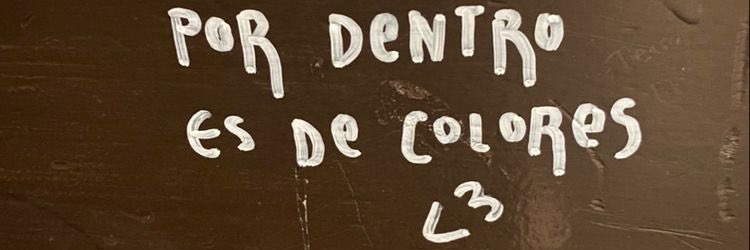 POR DENTRO
ES DE COLORES
<3